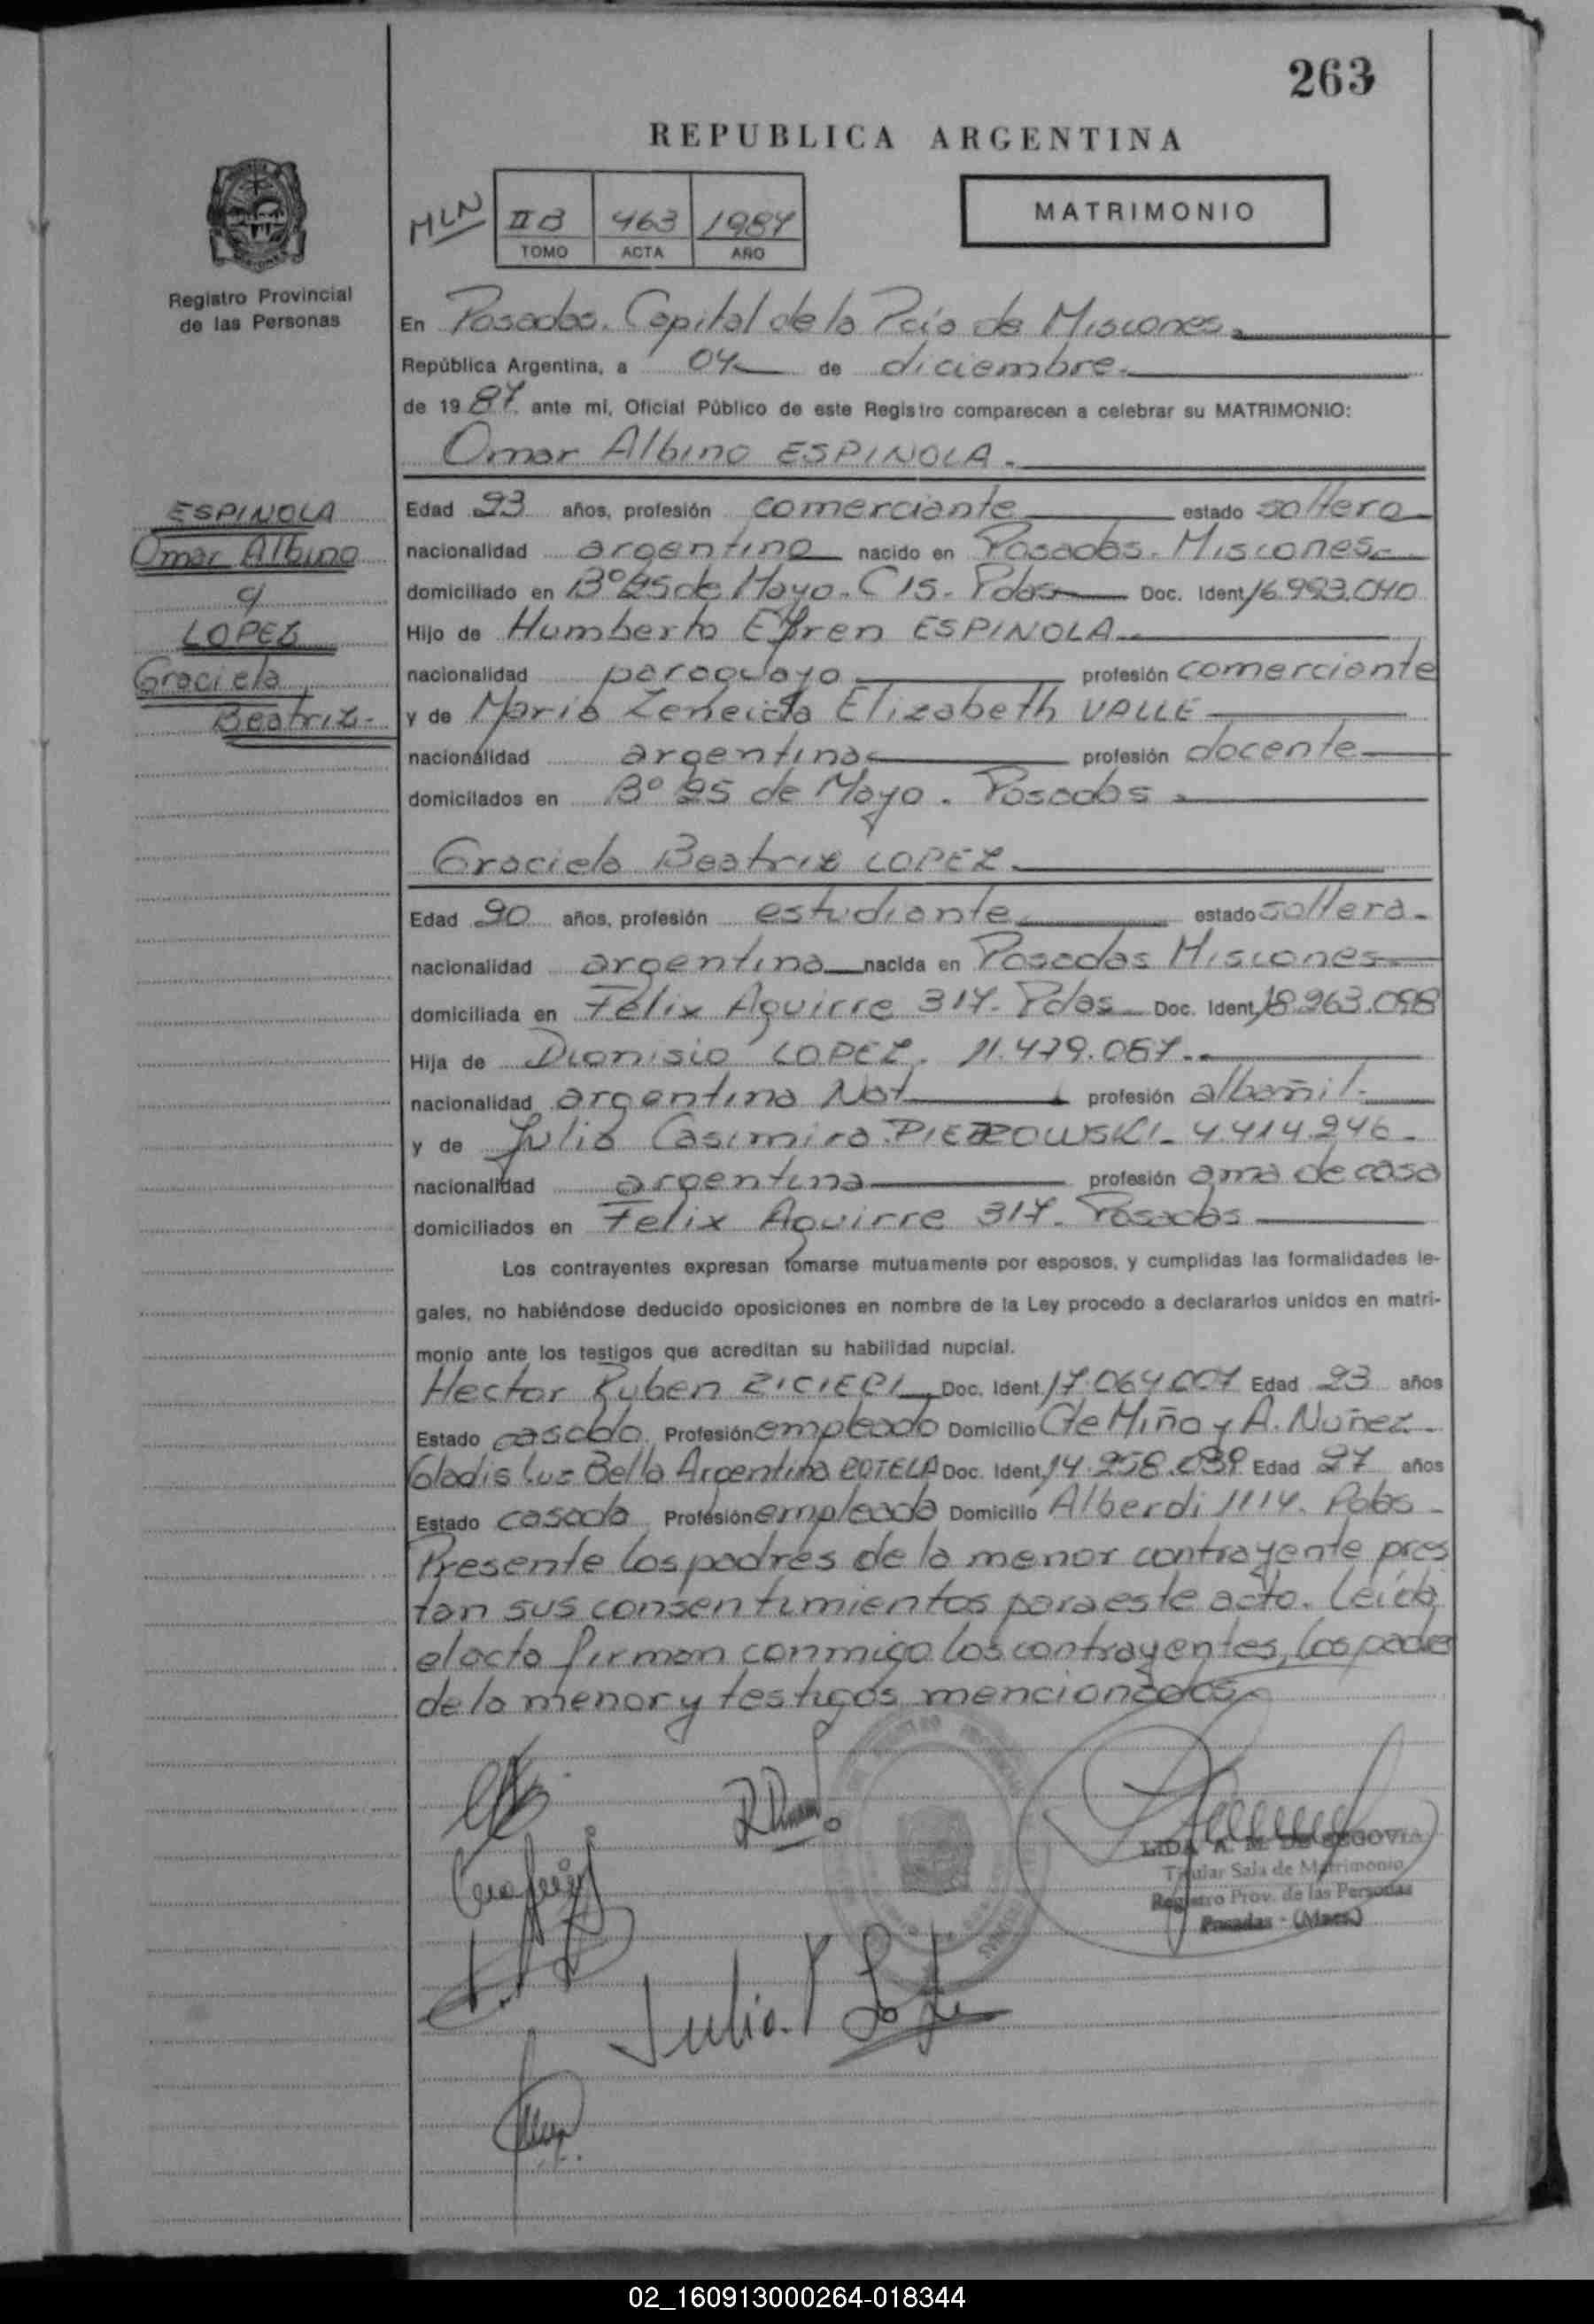 263
REPUBLICA ARGENTINA
MLN
II B 463 1987
TOMO ACTA AÑO
MATRIMONIO
Registro Provincial
de las Personas
En Posadas. Capital de la Pcia de Misiones.
República Argentina, a 04 de diciembre.
de 19 87 ante mí, Oficial Público de este Registro comparecen a celebrar su MATRIMONIO:
Omar Albino ESPINOLA.
ESPINOLA
Omar Albino
c/
LOPEZ
Graciela
Beatriz-
Edad 23 años, profesión comerciante estado soltero
nacionalidad argentino nacido en Posadas. Misiones.
domiciliado en B° 25 de Mayo. C 15. Pdas Doc. Ident. 16.993.040
Hijo de Humberto Efren ESPINOLA.
nacionalidad paraguayo profesión comerciante
y de Maria Zeneida Elizabeth VALLE
nacionalidad argentina profesión docente
domicilados en B° 25 de Mayo. Posadas.
Graciela Beatriz LOPEZ.
Edad 20 años, profesión estudiante estado soltera.
nacionalidad argentina nacida en Posadas Misiones
domiciliada en Félix Aguirre 317. Pdas Doc. Ident. 18.263.098
Hija de Dionisio LOPEZ. 11.479.067.
nacionalidad argentina Nat profesión albañil.
y de Julia Casimira PIEZZOWSKI- 4.414.246-
nacionalidad argentina profesión ama de casa
domiciliados en Felix Aguirre 317. Posadas
Los contrayentes expresan tomarse mutuamente por esposos, y cumplidas las formalidades le-
gales, no habiéndose deducido oposiciones en nombre de la Ley procedo a declararlos unidos en matri-
monio ante los testigos que acreditan su habilidad nupcial.
Hector Ruben Doc. Ident. 17.064.007 Edad 23 años
Estado casado Profesión empleado Domicilio Cte Miño y A. Nuñez-
Gladis Luz Bella Argentina ROTELA Doc. Ident. 14.258.039 Edad 27 años
Estado casada Profesión empleada Domicilio Alberdi 1114. Pdas-
Presente los padres de la menor contrayente pres
tan sus consentimientos para este acto. Leída
el acta firman conmigo los contrayentes, los padres
de la menor y testigos mencionados
LIDA A. M. DE SEGOVIA
Titular Sala de Matrimonio
Registro Prov. de las Personas
Posadas - (Mnes.)
Julia
02_160913000264-018344